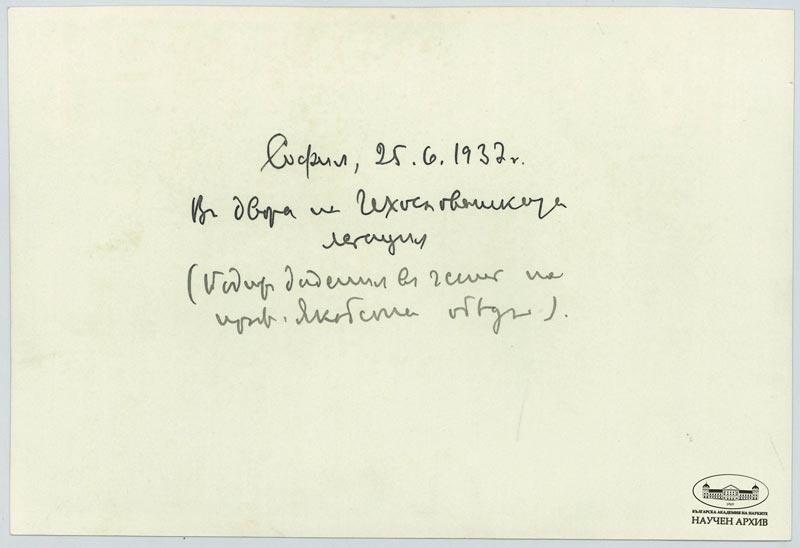 София, 25.6.1937 г.
Въ двора на Чехословашката
легация
(Подир дадения въ честь на
проф. Якобсона обѣдъ).
БЪЛГАРСКА АКАДЕМИЯ НА НАУКИТЕ
НАУЧЕН АРХИВ